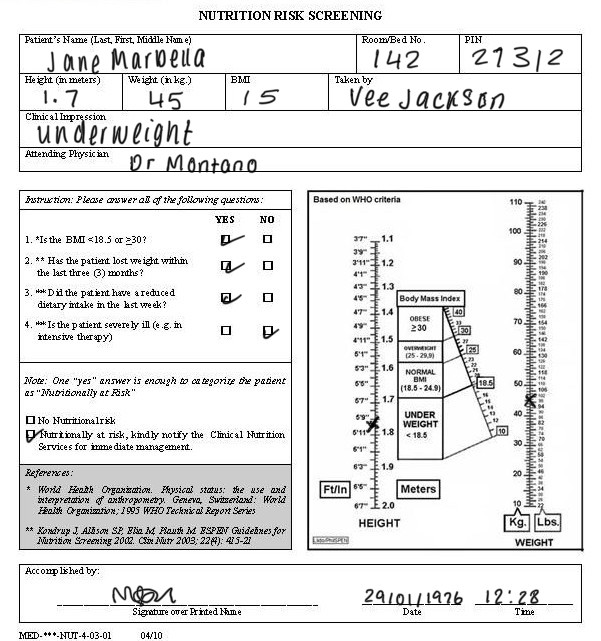 NUTRITION RISK SCREENING
Patient's Name (Last, First, Middle Name)
Jane Marbella
Room/Bed No.
142
PIN
27312
Height (in meters)
1.7
Weight (in kg.)
45
BMI
15
Taken by
Vee Jackson
Clinical Impression
underweight
Attending Physician
Dr Montano
Instruction: Please answer all of the following questions:
YES NO
1. *Is the BMI <18.5 or ≥30?
2. ** Has the patient lost weight within
the last three (3) months?
3. ** Did the patient have a reduced
dietary intake in the last week?
4. ** Is the patient severely ill (e.g. in
intensive therapy)
Note: One "yes" answer is enough to categorize the patient
as "Nutritionally at Risk"
No Nutritional risk
Nutritionally at risk, kindly notify the Clinical Nutrition
Services for immediate management.
References:
* World Health Organization. Physical status: the use and
interpretation of anthropometry. Geneva, Switzerland: World
Health Organization; 1995 WHO Technical Report Series
** Kondrup J, Allison SP, Elia M, Plauth M. ESPEN Guidelines for
Nutrition Screening 2002. Clin Nutr 2003; 22(4): 415-21
Based on WHO criteria
3'7" 1.1
3'9"
3'11" 1.2
4'1"
4'3" 1.3
4'5"
4'7" 1.4
4'9"
4'11" 1.5
5'1"
5'3" 1.6
5'5"
5'7" 1.7
5'9"
5'11" 1.8
6'1"
6'3" 1.9
6'5"
6'7" 2.0
Ft/In Meters
HEIGHT
Body Mass Index
OBESE
≥30
OVERWEIGHT
(25 - 29,9)
NORMAL
BMI
(18.5 - 24.9)
UNDER
WEIGHT
< 18.5
40
30
25
18.5
10
110
100
90
80
70
60
50
40
30
20
10
Kg. Lbs.
WEIGHT
Accomplished by:
Signature over Printed Name
29/01/1976
Date
12:28
Time
MED-***-NUT-4-03-01 04/10